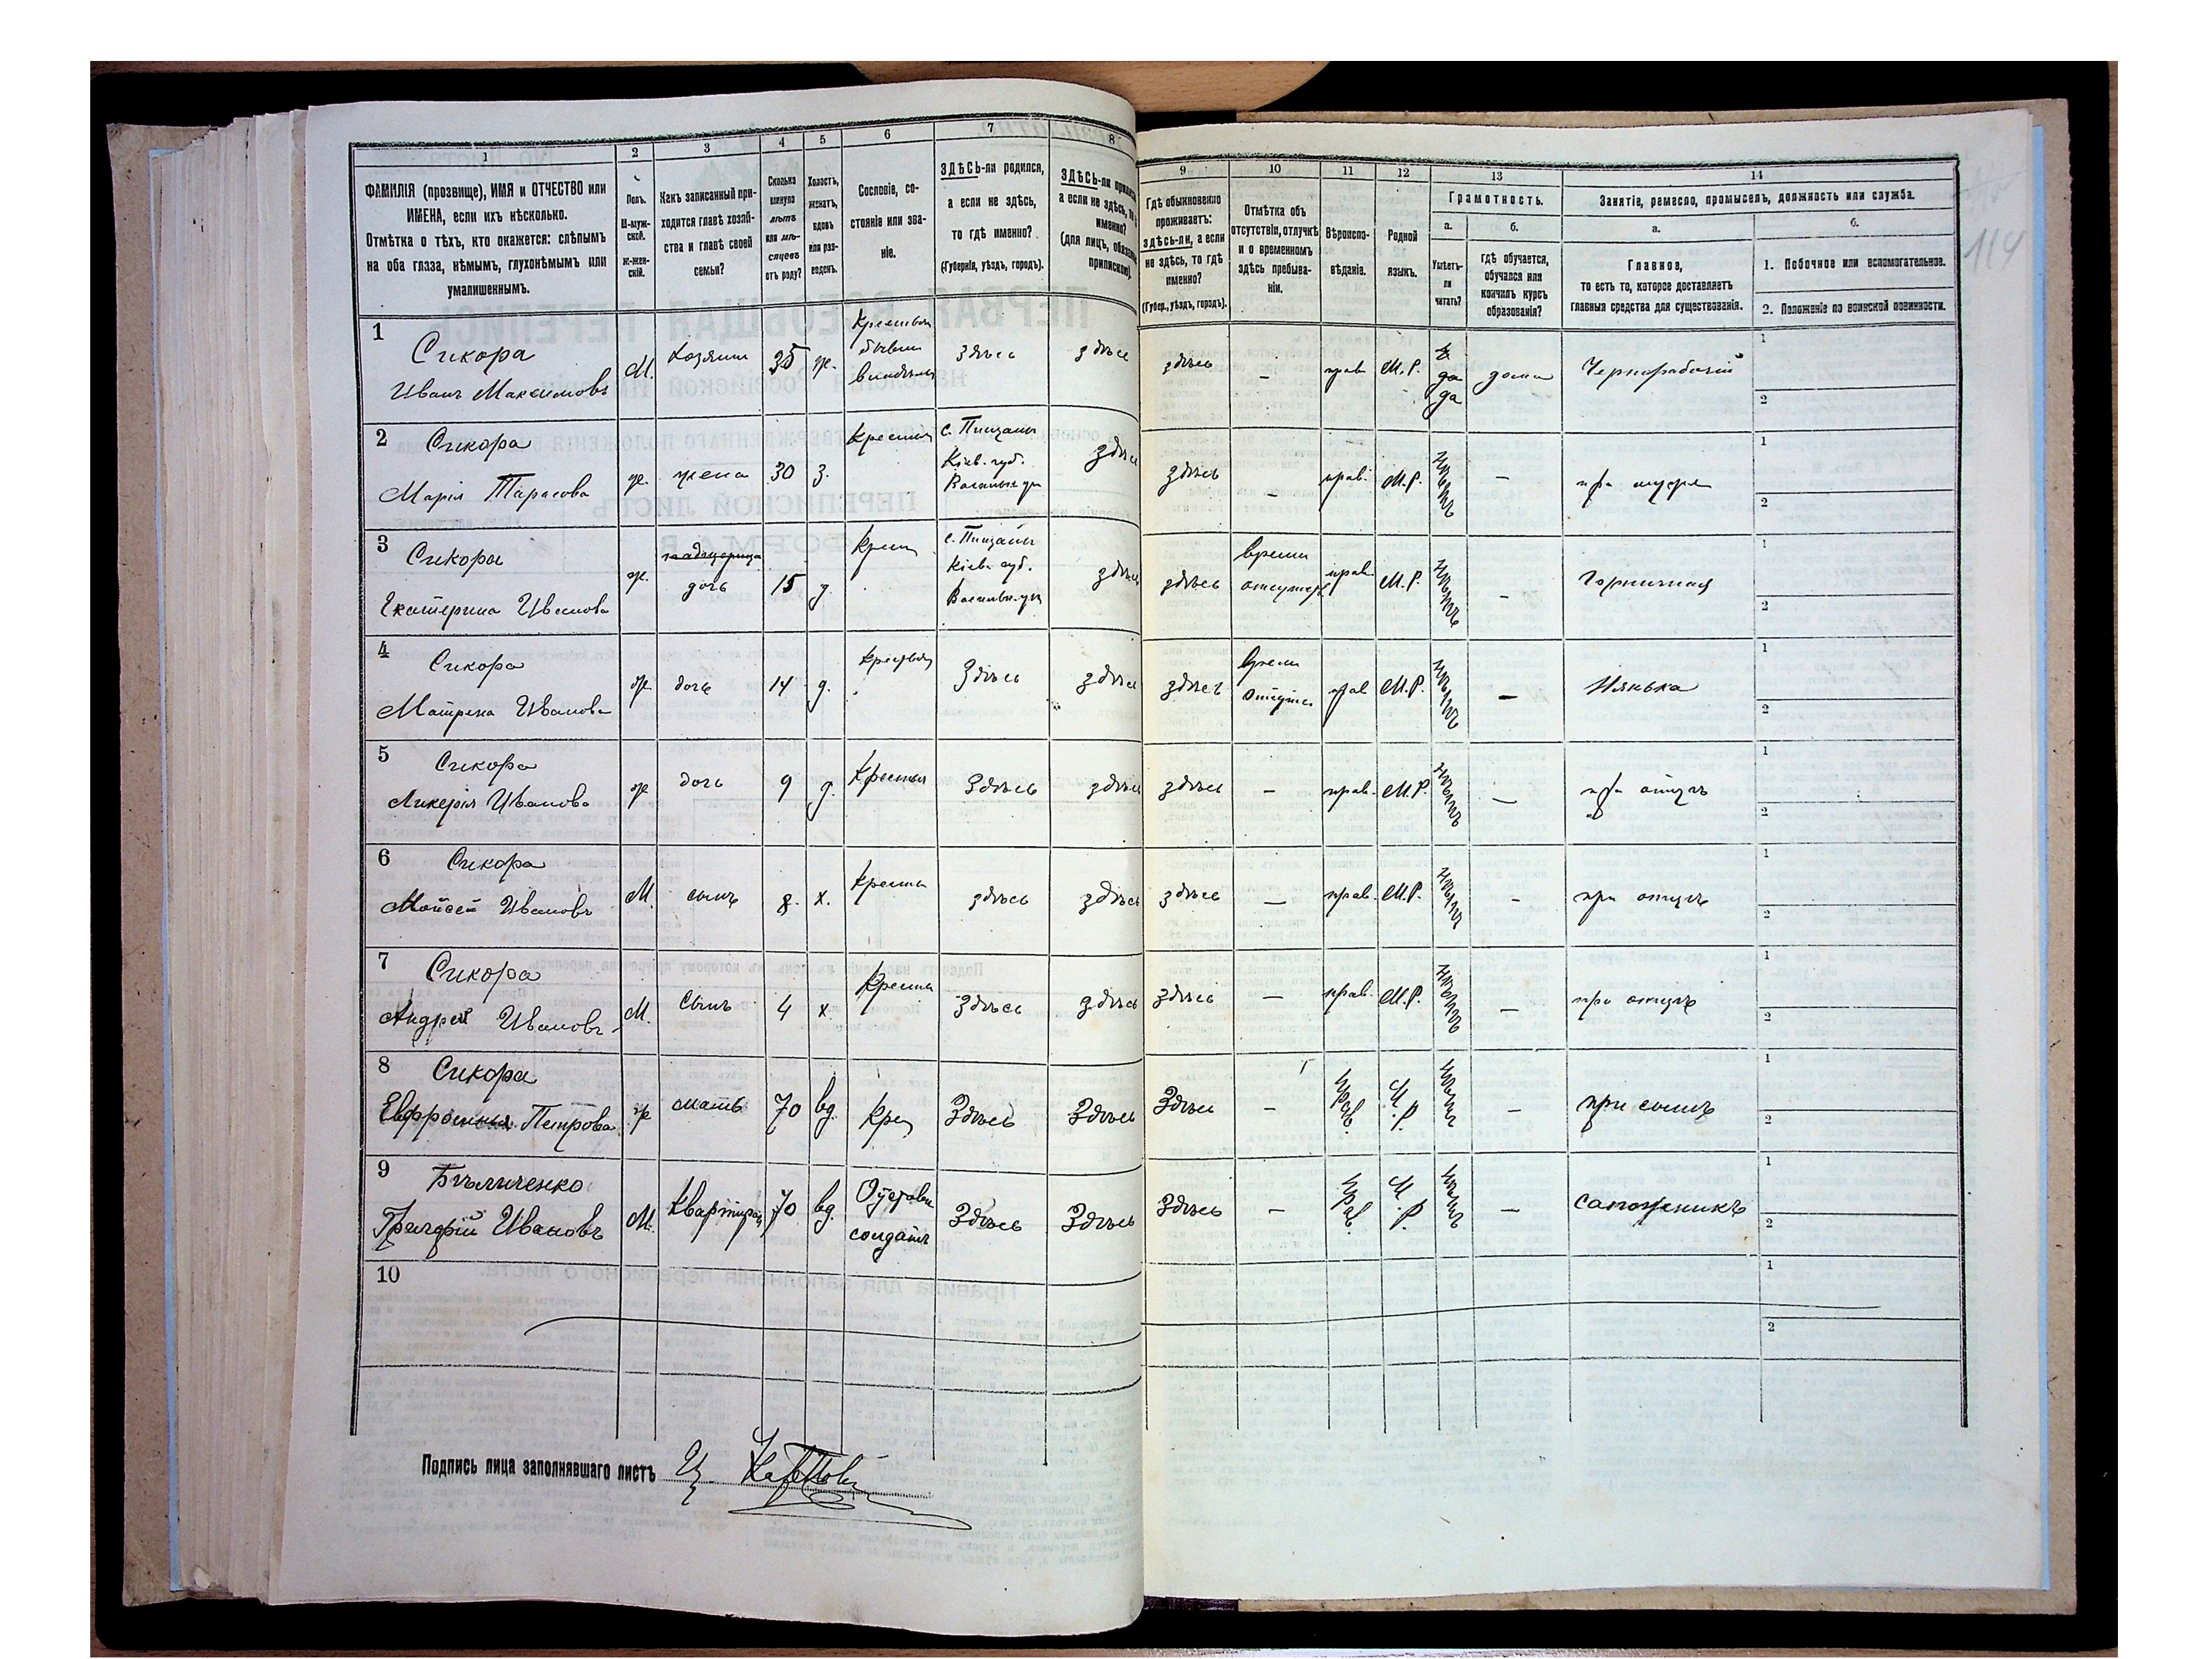 1
2
3
4
5
6
7
8
ФАМИЛІЯ (прозвище), ИМЯ и ОТЧЕСТВО или
ИМЕНА, если ихъ нѣсколько.
Отмѣтка о тѣхъ, кто окажется: слѣпымъ
на оба глаза, нѣмымъ, глухонѣмымъ или
умалишеннымъ.
Полъ.
М-муж-
ской.
Ж-жен-
скій.
Какъ записанный при-
ходится главѣ хозяй-
ства и главѣ своей
семьи?
Сколько
минуло
лѣтъ
или мѣ-
сяцевъ
отъ роду?
Холостъ,
женатъ,
вдовъ
или раз-
веденъ.
Сословіе, со-
стояніе или зва-
ніе.
ЗДѢСЬ-ли родился,
а если не здѣсь,
то гдѣ именно?
(Губернія, уѣздъ, городъ).
ЗДѢСЬ-ли
а если не здѣсь,
именно?
(для лицъ,
9
10
11
12
13
14
Гдѣ обыкновенно
проживаетъ:
здѣсь-ли, а если
не здѣсь, то гдѣ
именно?
(Губер., уѣздъ, городъ).
Отмѣтка объ
отсутствіи, отлучкѣ
и о временномъ
здѣсь пребыва-
ніи.
Вѣроиспо-
вѣданіе.
Родной
языкъ.
Грамотность.
а.
б.
Умѣетъ-
ли
читать?
гдѣ обучается,
обучался или
кончилъ курсъ
образованія?
Занятіе, ремесло, промыселъ, должность или служба.
а.
б.
Главное,
то есть то, которое доставляетъ
главныя средства для существованія.
1. Побочное или вспомогательное.
2. Положеніе по воинской повинности.
114
1
Сикора
Иванъ Максимовъ
М.
Хозяин
35
ж.
здѣсь
здѣсь
здѣсь
–
прав
М.Р.
да
да
дома
Чернорабочій
1
2
2
Сикора
Марія Тарасова
ж.
жена
30
з.
с. Пищани
Кіев. губ.
здѣсь
здѣсь
–
прав.
М.Р.
–
при мужѣ
1
2
3
Сикора
Екатерина Иванова
ж.
падчерица
дочь
15
д.
с. Пищани
Кіев. губ.
здѣсь
здѣсь
прав
М.Р.
–
Горничная
1
2
4
Сикора
Матрена Иванова
ж.
дочь
14
д.
Здѣсь
здѣсь
здѣсь
прав
М.Р.
–
Нянька
1
2
5
Сикора
Ликерія Иванова
ж
дочь
9
д.
Здѣсь
здѣсь
здѣсь
–
прав.
М.Р.
–
при отцѣ
1
2
6
Сикора
Мойсей Ивановъ
М.
сынъ
8.
х.
здѣсь
здѣсь
здѣсь
–
прав.
М.Р.
–
при отцѣ
1
2
7
Сикора
Андрей Ивановъ
М.
Сынъ
4
х.
Здѣсь
здѣсь
здѣсь
–
прав.
М.Р.
–
при отцѣ
1
2
8
Сикора
Евфросинья Петрова
ж
мать
70
вд.
Крес
Здѣсь
Здѣсь
Здѣсь
–
прав.
М.Р.
–
при сынѣ
1
2
9
Бѣличенко
Григорій Ивановъ
М.
70
вд.
солдатъ
Здѣсь
Здѣсь
Здѣсь
–
прав.
М.Р.
–
сапожникъ
1
2
10
1
2
Подпись лица заполнявшаго листъ